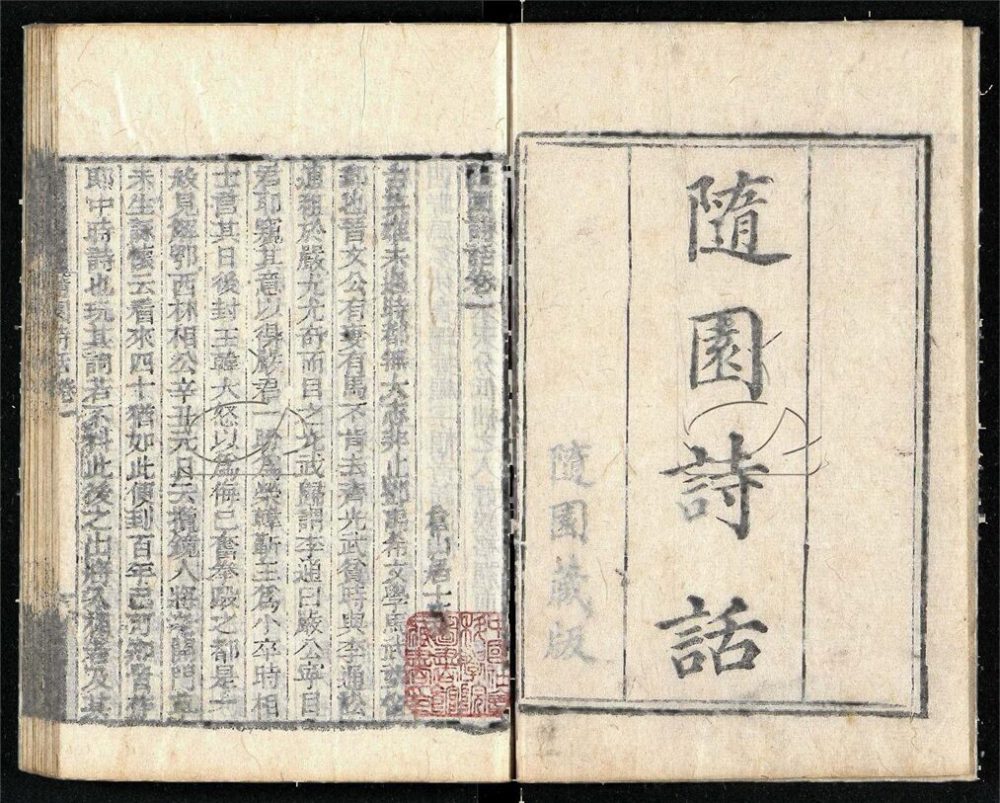 隨園詩話
隨園藏版
隨園詩話卷一
倉山居士
古英雄未遇時都無大志非止鄧禹希文學馬武望
郵也晉文公有妻有馬不肯去齊光武貧時與李通訟
逋租於嚴尤尤奇而目之光武歸謂李通曰嚴公寧目
君耶窺其意以得嚴君一盼為榮韓蘄王為小卒時相
士言其日後封王韓大怒以為侮己奮拳毆之都是一
般見解鄂西林相公辛丑元日云攬鏡人將老開門草
未生詠懷云看來四十猶如此便到百年已可知皆作
郎中時詩也玩其詞若不料此後之出將入相者及其